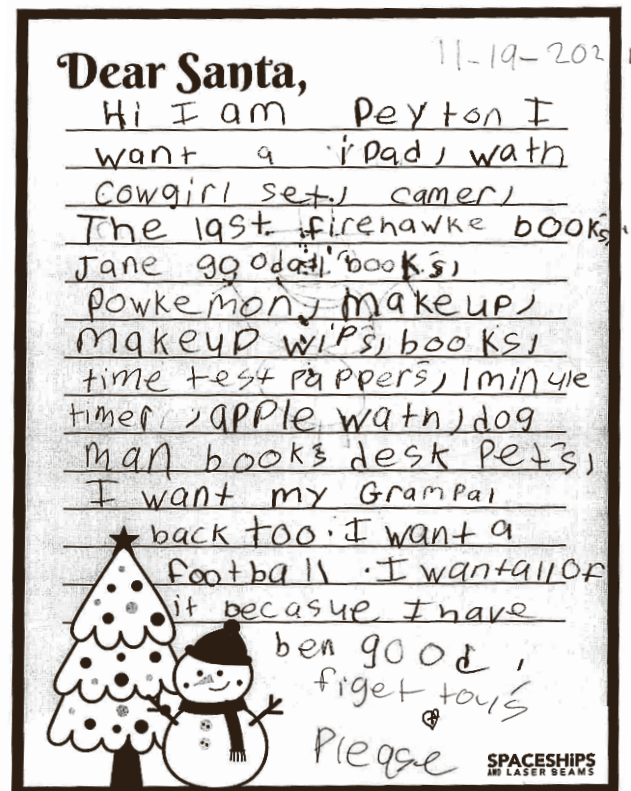 11-19-2021
Dear Santa,
Hi I am Peyton I
want a iPad, wath
cowgirl set, camer,
The last firehawke books,
Jane goodall books,
Powkemon, makeup,
Makeup wips, books,
time test pappers, 1minute
timer, apple wath, dog
man books desk Pets,
I want my Grampai
back too. I want a
football . I want all of
it becasue I have
ben good,
figet toys
Please
SPACESHIPS
AND LASER BEAMS